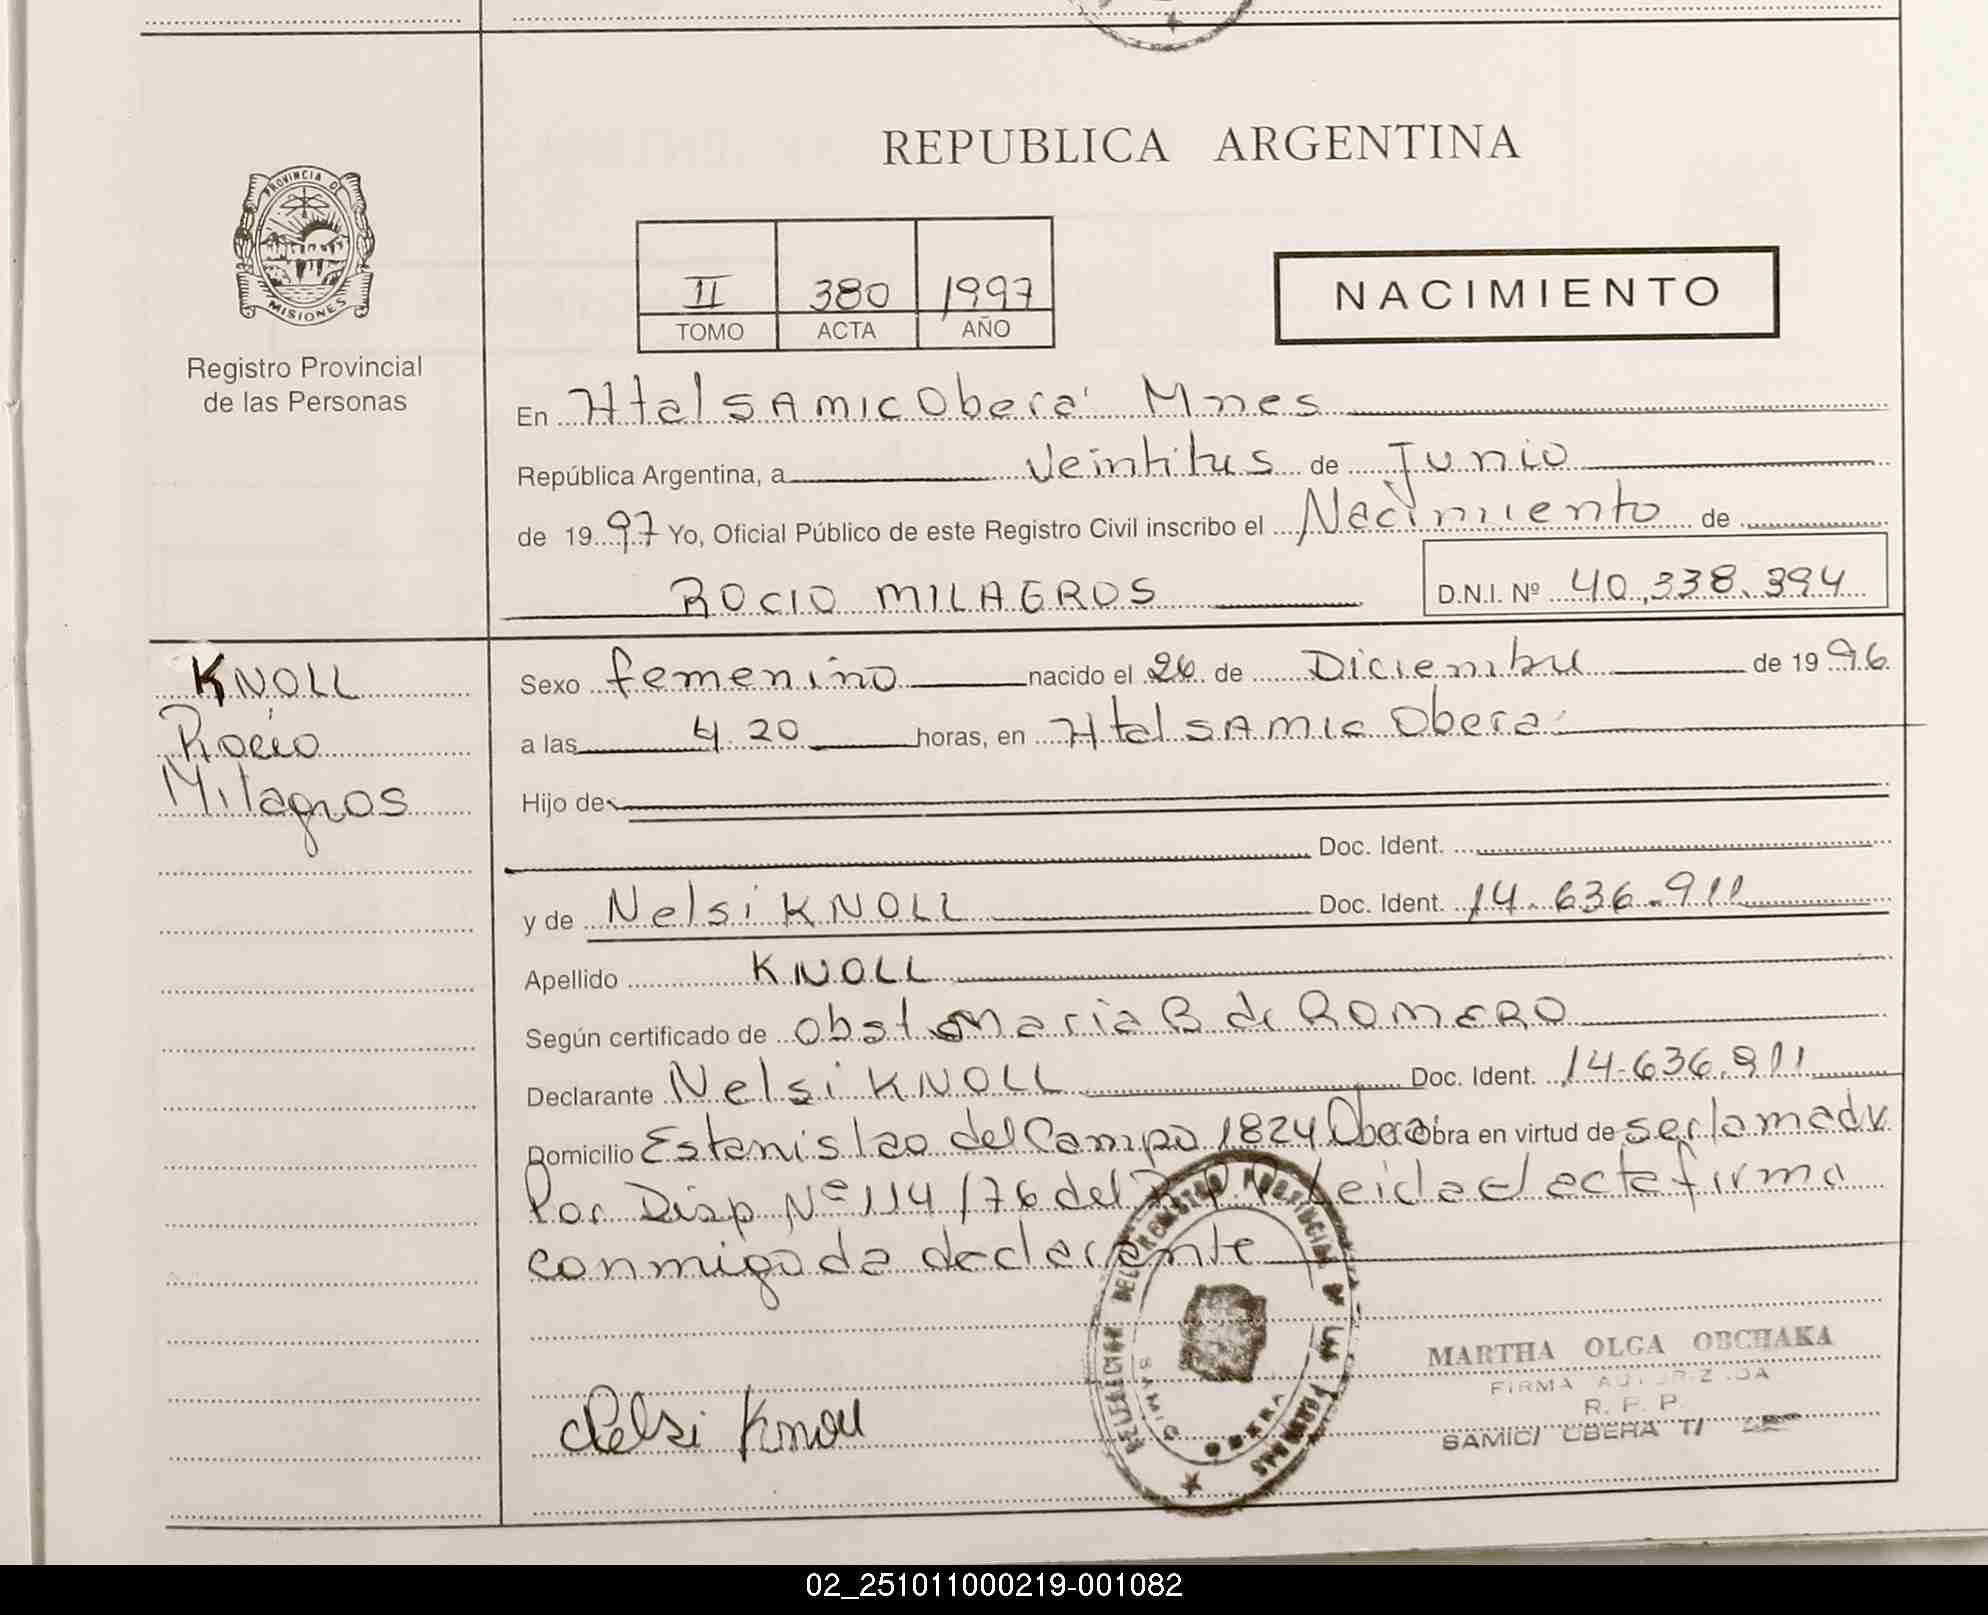 REPUBLICA ARGENTINA
PROVINCIA DE
MISIONES
Registro Provincial
de las Personas
II 380 1997
TOMO ACTA AÑO
NACIMIENTO
En Htal SAMIC Oberá Mnes
República Argentina, a Veintitres de Junio
de 1997 Yo, Oficial Público de este Registro Civil inscribo el Nacimiento de
ROCIO MILAGROS D.N.I. Nº 40.338.394
KNOLL
Rocio
Milagros
Sexo femenino nacido el 26 de Diciembre de 1996
a las 4.20 horas, en Htal SAMIC Oberá
Hijo de
Doc. Ident.
y de Nelsi KNOLL Doc. Ident. 14.636.911
Apellido KNOLL
Según certificado de Obst Maria B de ROMERO
Declarante Nelsi KNOLL Doc. Ident. 14.636.911
Domicilio Estanislao del Campo 1824 Oberá obra en virtud de ser la madre
Por Disp Nº 114/76 del R.P.P. Leida el acta firma
conmigo la declarante
DEL REGISTRO PROVINCIAL DE LAS PERSONAS
SAMIC
OBERA
Nelsi Knoll
MARTHA OLGA OBCHAKA
FIRMA AUTORIZADA
R. P. P.
SAMIC/ OBERA
02_251011000219-001082